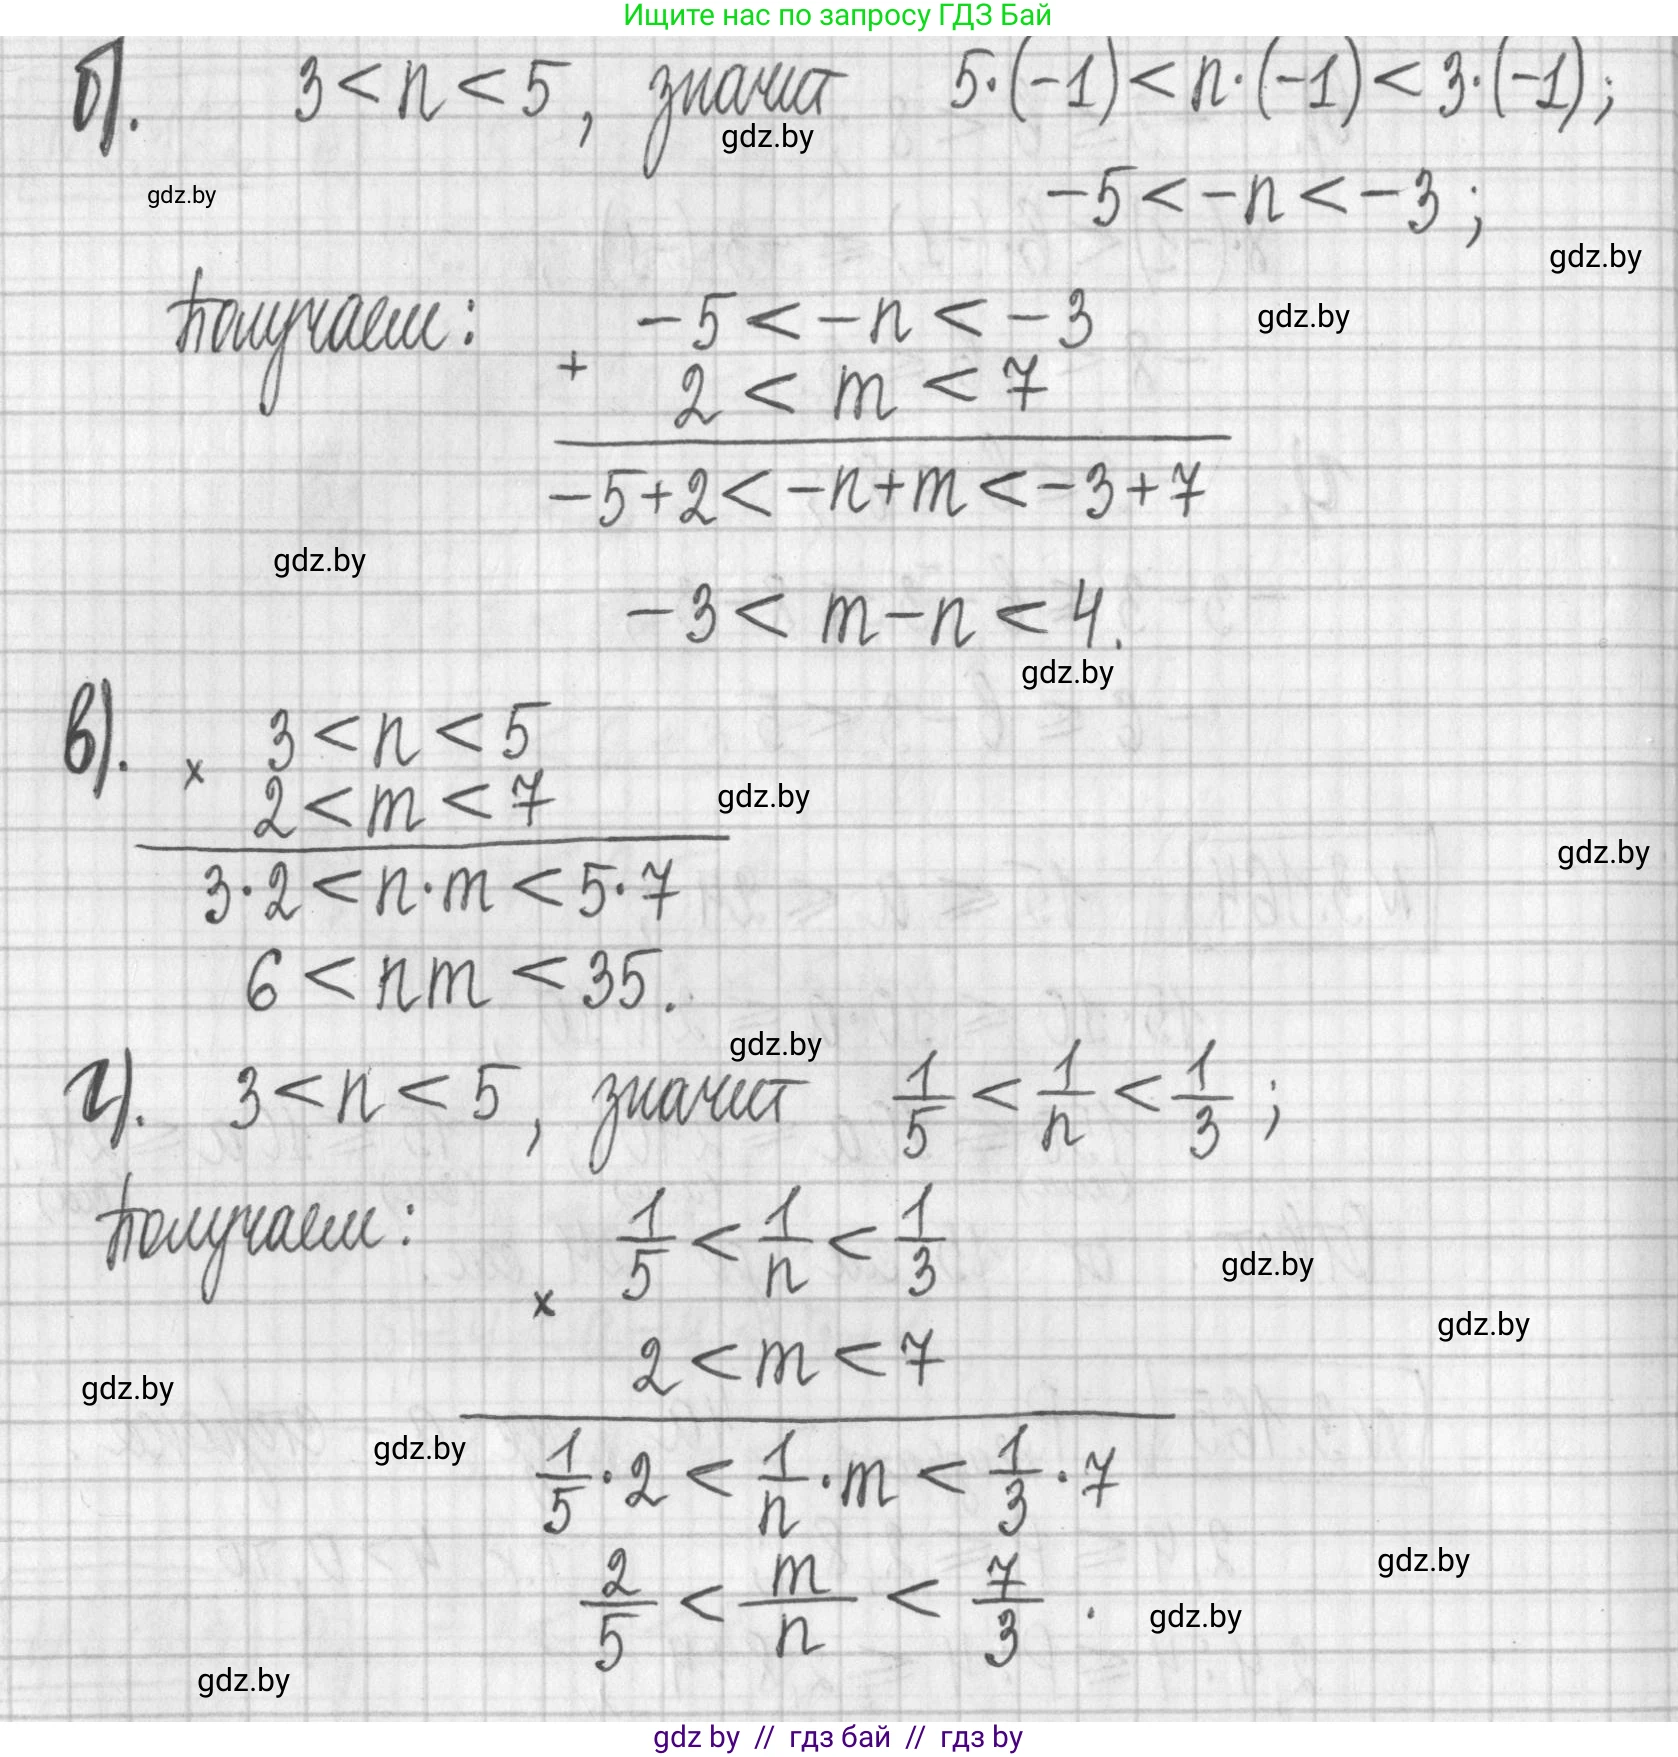 Ищите нас по запросу ГДЗ Бай
б). 3 < n < 5, значит 5·(-1) < n·(-1) < 3·(-1);
gdz.by
gdz.by
-5 < -n < -3;
gdz.by
Получаем: -5 < -n < -3
gdz.by
+ 2 < m < 7
-5+2 < -n+m < -3+7
gdz.by
-3 < m-n < 4.
gdz.by
в). 3 < n < 5
× 2 < m < 7
gdz.by
gdz.by
3·2 < n·m < 5·7
6 < nm < 35.
gdz.by
г). 3 < n < 5, значит 1/5 < 1/n < 1/3;
Получаем: 1/5 < 1/n < 1/3
gdz.by
× 2 < m < 7
gdz.by
gdz.by
gdz.by
1/5 · 2 < 1/n · m < 1/3 · 7
gdz.by
2/5 < m/n < 7/3.
gdz.by
gdz.by
gdz by // гдз бай // гдз by